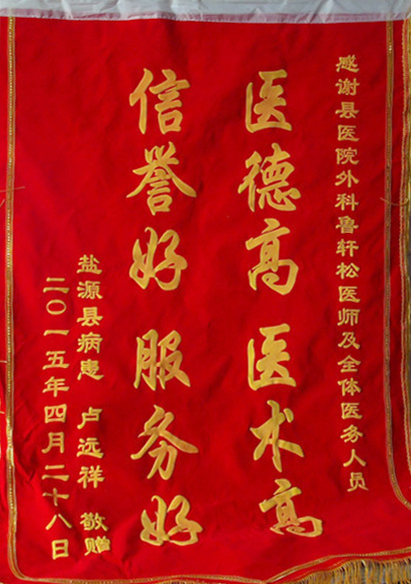 感谢县医院外科鲁轩松医师及全体医务人员
医德高 医术高
信誉好 服务好
盐源县病患 卢远祥 敬赠
二〇一五年四月二十八日